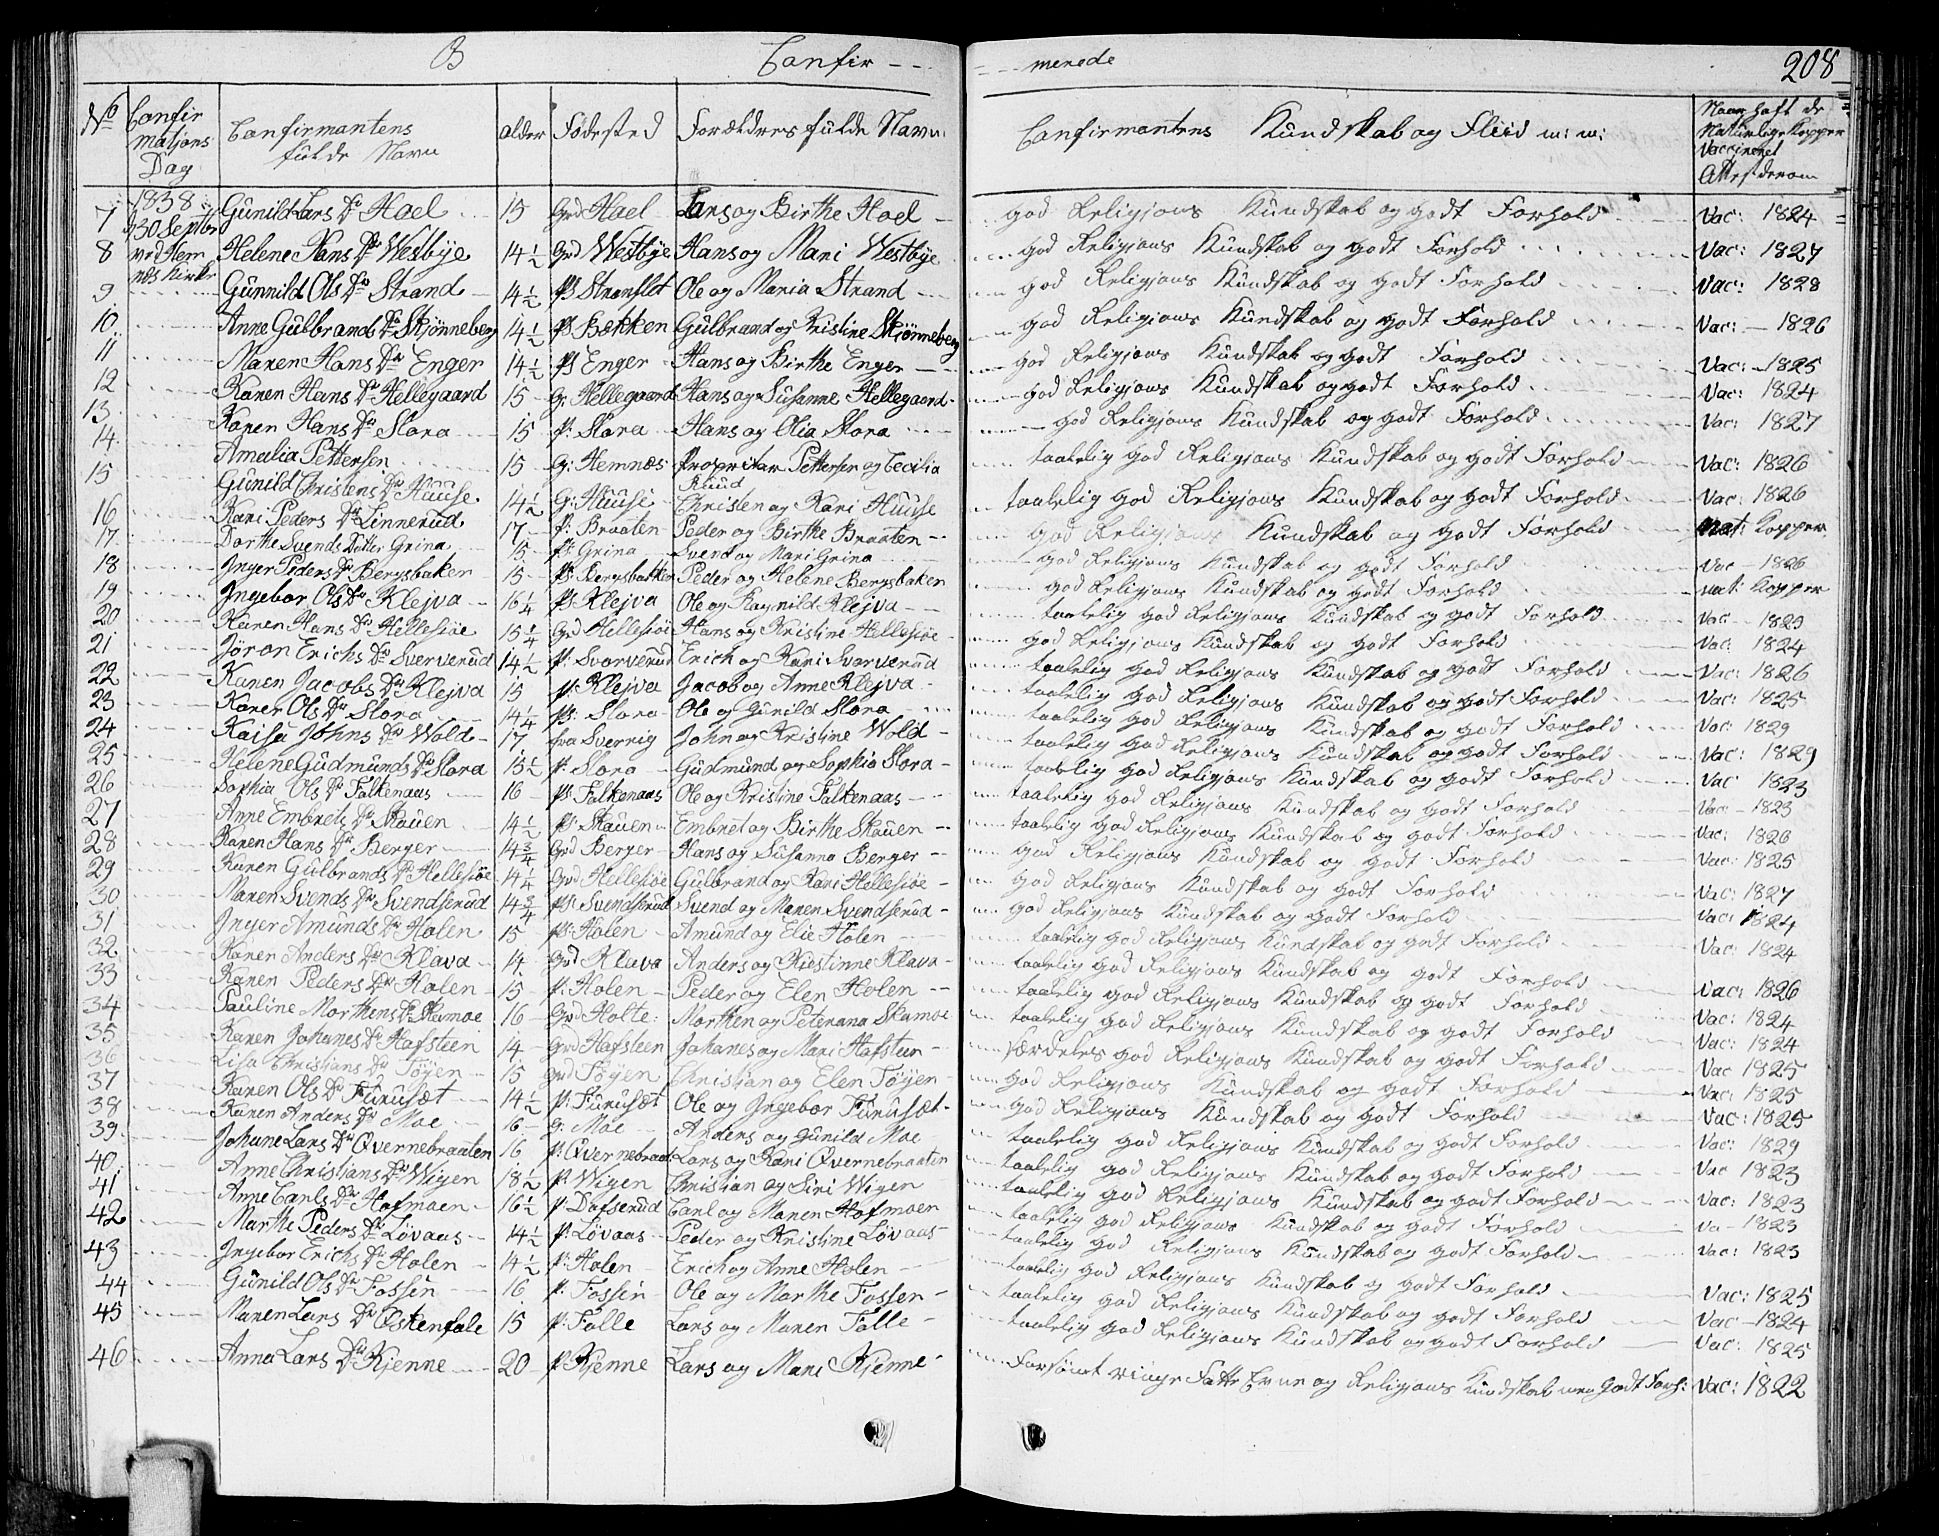 B Confir - - - - - merede 208
No Confir matjons Dag Confirmantens fulde Navn alder Fødested Forældres fulde Navn Confirmantens Kundskab og Fliid m: m: Naar haft de Naturlige Kopper Vaccineret Attest derom
7 1838 d 30 Septbr Gunild Lars Dr Hael 15 Grd Hael Lars og Birthe Hael god Religjons Kundskab og godt Forhold Vac: 1824
8 ved Hemnæs Kirke Helene Hans Dr Westbye 14 1/2 Grd Westbye Hans og Mari Westbye god Religjons Kundskab og godt Forhold Vac: 1827
9 Gunnild Ols Dr Strand 14 1/2 Ps Ole og Maria Strand god Religjons Kundskab og godt Forhold Vac: 1828
10 Anne Gulbrands Dr Skjønneberg 14 1/2 Ps Bækken Gulbrand og Kristine Skjønneberg god Religjons Kundskab og godt Forhold Vac: 1826
11 Maren Hans Dr Enger 14 1/2 Ps Enger Hans og Birthe Enger god Religjons Kundskab og godt Forhold Vac: 1825
12 Karen Hans Dr Hellegaard 15 G: Hellegaard Hans og Susanne Hellegaard god Religjons Kundskab og godt Forhold Vac: 1824
13 Karen Hans Dr Slora 15 P: Slora Hans og Olia Slora god Religjons Kundskab og godt Forhold Vac: 1827
14 Amalia Pettersen 15 G: Hemnæs Proprietær Pettersen og Cecilia Ruud taalelig god Religjons Kundskab og godt Forhold Vac: 1826
15 Gunild Christens Dr Huuse 14 1/2 G: Huuse Christen og Kari Huuse taalelig god Religjons Kundskab og godt Forhold Vac: 1826
16 Kari Peders Dr Linnerud 17 P: Braaten Peder og Birthe Braaten god Religjons Kundskab og godt Forhold nat: Kopper
17 Dorthe Svends Datter Grina 15 Ps Grina Svend og Mari Grina god Religjons Kundskab og godt Forhold Vac 1826
18 Inger Peders Dr Bergsbaken 15 Ps Bergsbakken Peder og Helene Bergsbaken god Religjons Kundskab og godt Forhold nat: Kopper
19 Ingebor Ols Dr Klejva 16 1/4 Ps Klejva Ole og Ragnild Klejva taalelig god Religjons Kundskab og godt Forhold Vac 1823
20 Karen Hans Dr Hellesiøe 15 1/4 Grd Hellesiøe Hans og Kristine Hellesiøe god Religjons Kundskab og godt Forhold Vac: 1824
21 Jøran Erichs Dr Sververud 14 1/2 P: Svorverud Erich og Kari Svarverud taalelig god Religjons Kundskab og godt Forhold Vac: 1826
22 Karen Jacobs Dr Klejva 15 P: Klejva Jacob og Anne Klejva taalelig god Religjons Kundskab og godt Forhold Vac: 1825
23 Karen Ols Dr Slora 14 1/4 Ps: Slora Ole og Gunild Slora taalelig god Religjons Kundskab og godt Forhold Vac: 1829
24 Kaisa Johns Dr Wold 17 fra Sverrig John og Kristine Wold taalelig god Religjons Kundskab og godt Forhold Vac: 1829
25 Helene Gudmunds Dr Slora 15 1/2 P: Slora Gudmund og Sophia Slora taalelig god Religjons Kundskab og godt Forhold Vac 1823
26 Sophia Ols Dr Falkenaas 16 Ps Falkenaas Ole og Kristine Falkenaas taalelig god Religjons Kundskab og godt Forhold Vac 1823
27 Anne Embrets Dr Skauen 14 1/2 Ps: Skauen Embret og Birthe Skauen taalelig god Religjons Kundskab og godt Forhold Vac: 1826
28 Karen Hans Dr Berger 14 3/4 Grd Berger Hans og Susanna Berger god Religjons Kundskab og godt Forhold Vac: 1825
29 Karen Gulbrands Dr Hellesiøe 14 1/4 Grd Hellesiøe Gulbrand og Kari Hellesiøe god Religjons Kundskab og godt Forhold Vac: 1827
30 Maren Svends Dr Svendserud 14 3/4 Ps: Svendserud Svend og Maren Svendserud god Religjons Kundskab og godt Forhold Vac: 1824
31 Inger Amunds Dr Holen 15 Ps: Holen Amund og Elie Holen taalelig god Religjons Kundskab og godt Forhold Vac: 1824
32 Karen Anders Dr Klava 14 Grd Klava Anders og Kiestinne Klava taalelig god Religjons Kundskab og godt Forhold Vac: 1826
33 Karen Peders Dr Holen 15 P: Holen Peder og Elen Holen taalelig god Religjons Kundskab og godt Forhold Vac: 1824
34 Pauline Morthens Dr Skamoe 16 Grd Holte Morthen og Peternna Skamoe taalelig god Religjons Kundskab og godt Forhold Vac: 1824
35 Karen Johanes Dr Hafsteen 14 Grd Hafsteen Johanes og Mari Hafsteen særdeles god Religjons Kundskab og godt Forhold Vac 1825
36 Lisa Christians Dr Tøyen 15 Grd Tøyen Christian og Elen Tøyen god Religjons Kundskab og godt Forhold Vac: 1825
37 Karen Ols Dr Furusæt 14 1/2 P: Furusæt Ole og Ingebor Furusæt god Religjons Kundskab og godt Forhold Vac: 1825
38 Karen Anders Dr Moe 16 G: Moe Anders og Gunild Moe taalelig god Religjons Kundskab og godt Forhold Vac: 1829
39 Johane Lars Dr Qvernebraaten 16 P: Qvernebraat: Lars og Kari Qvernebraaten taalelig god Religjons Kundskab og godt Forhold Vac 1823
40 Anne Christians Dr Wigen 18 1/2 P: Wigen Christian og Siri Wigen taalelig god Religjons Kundskab og godt Forhold Vac: 1823
41 Anne Carls Dr Hofmoen 16 1/2 P: Dafserud Carl og Maren Hofmoen taalelig god Religjons Kundskab og godt Forhold Va 1823
42 Marthe Peders Dr Løvaas 14 1/2 P: Løvaas Peder og Kristine Løvaas taalelig god Religjons Kundskab og godt Forhold Vac: 1823
43 Ingebor Erichs Dr Holen 14 1/2 P: Holen Erich og Anne Holen taalelig god Religjons Kundskab og godt Forhold Vac: 1825
44 Gunild Ols Dr Fossen 16 P: Fossen Ole og Marthe Fossen taalelig god Religjons Kundskab og godt Forhold Vac 1824
45 Maren Lars Dr Østenfale 15 P: Falle Lars og Maren Falle taalelig god Religjons Kundskab og godt Forhold Vac: 1825
46 Anna Lars Dr Kjenne 20 P Kjenne Lars og Mari Kjenne Forsømt ringe Fatte Evne og Religjons Kundskab men Godt Forh: Vac: 1822